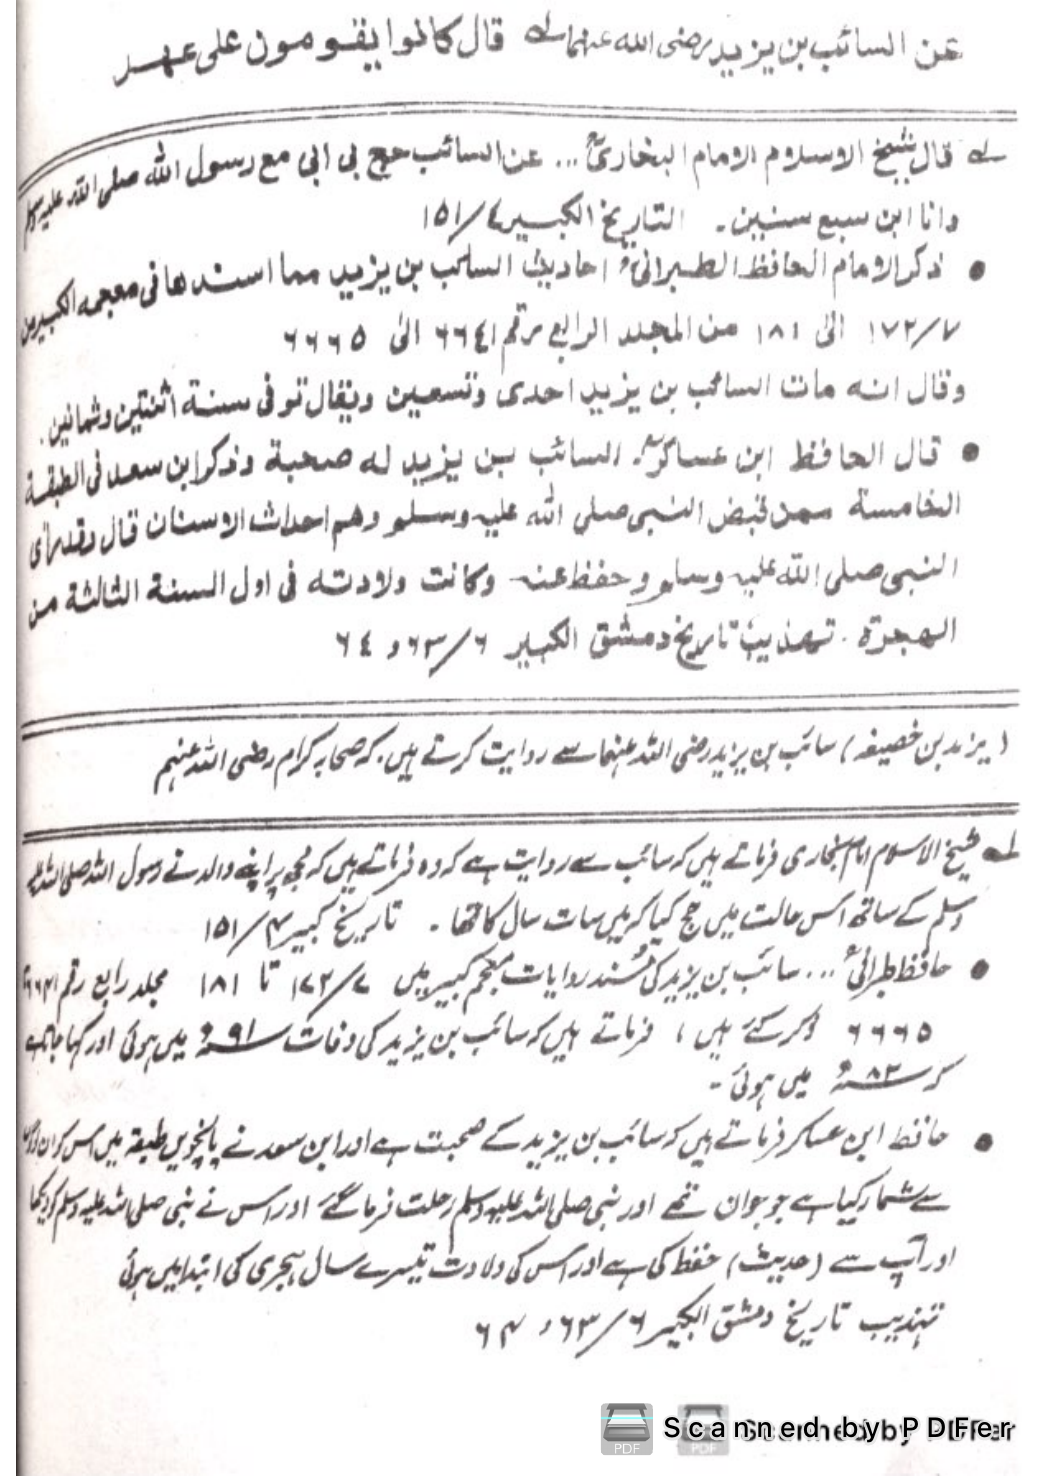 عن السائب بن یزید رضی اللہ عنہما لے قال کانوا یقومون علی عہد
لے قال شیخ الاسلام الامام البخاریؒ ... عن السائب حج بی ابی مع رسول اللہ صلی اللہ علیہ وسلم
وانا ابن سبع سنین۔ التاریخ الکبیر ٤/١٥١
• ذکر الامام الحافظ الطبرانیؒ احادیث السائب بن یزید مما اسندھا فی معجمہ الکبیر من
٧/١٧٢ الیٰ ١٨١ من المجلد الرابع رقم ٦٦٤١ الیٰ ٦٦٦٥
وقال انہ مات السائب بن یزید احدی وتسعین ویقال توفی سنة اثنتین وثمانین.
• قال الحافظ ابن عساکرؒ۔ السائب بن یزید لہ صحبة وذکر ابن سعد فی الطبقة
الخامسة ممن قبض النبی صلی اللہ علیہ وسلم وھم احداث الاسنان قال وقد رأی
النبی صلی اللہ علیہ وسلم وحفظ عنہ وکانت ولادتہ فی اول السنة الثالثة من
الھجرة۔ تھذیب تاریخ دمشق الکبیر ٦/٦٣، ٦٤
(یزید بن خصیفہ) سائب بن یزید رضی اللہ عنہما سے روایت کرتے ہیں۔ کہ صحابہ کرام رضی اللہ عنہم
لے شیخ الاسلام امام بخاری فرماتے ہیں کہ سائب سے روایت ہے کہ وہ فرماتے ہیں کہ مجھ پر اپنے والد نے رسول اللہ صلی اللہ علیہ
وسلم کے ساتھ اس حالت میں حج کیا کہ میں سات سال کا تھا۔ تاریخ کبیر ۴/۱۵۱
• حافظ طبرانیؒ ... سائب بن یزید کی مُسند روایات معجم کبیر میں ۷/۱۷۲ تا ۱۸۱ مجلد رابع رقم ۶۶۴۱ تا
۶۶۶۵ ذکر کئے ہیں، فرماتے ہیں کہ سائب بن یزید کی وفات سنہ ۹۱ھ میں ہوئی اور کہا جاتا ہے
کہ سنہ ۸۲ھ میں ہوئی۔
• حافظ ابن عساکر فرماتے ہیں کہ سائب بن یزید کے صحبت ہے اور ابن سعد نے پانچویں طبقہ میں اس کو ان لوگوں
سے شمار کیا ہے جو جوان تھے اور نبی صلی اللہ علیہ وسلم رحلت فرما گئے اور اس نے نبی صلی اللہ علیہ وسلم کو دیکھا
اور آپ سے (حدیث) حفظ کی ہے اور اس کی ولادت تیسرے سال ہجری کی ابتداء میں ہوئی
تہذیب تاریخ دمشق الکبیر ۶/۶۳، ۶۴
Scanned by PDFer